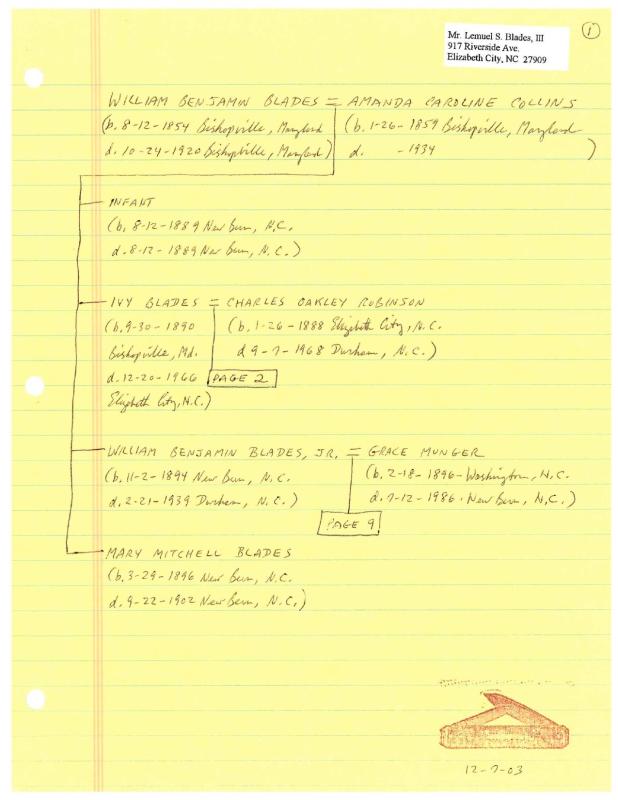 Mr. Lemuel S. Blades, III
917 Riverside Ave.
Elizabeth City, NC 27909
1
WILLIAM BENJAMIN BLADES = AMANDA CAROLINE COLLINS
(b. 8-12-1854 Bishopville, Maryland (b. 1-26-1859 Bishopville, Maryland
d. 10-24-1920 Bishopville, Maryland) d. -1934 )
INFANT
(b. 8-12-1889 New Bern, N.C.
d. 8-12-1889 New Bern, N.C.)
IVY BLADES = CHARLES OAKLEY ROBINSON
(b. 9-30-1890 (b. 1-26-1888 Elizabeth City, N.C.
Bishopville, Md. d 9-7-1968 Durham, N.C.)
d. 12-20-1966 PAGE 2
Elizabeth City, N.C.)
WILLIAM BENJAMIN BLADES, JR. = GRACE MUNGER
(b. 11-2-1894 New Bern, N.C. (b. 2-18-1896 Washington, N.C.
d. 2-21-1939 Durham, N.C.) d. 7-12-1986 New Bern, N.C.)
PAGE 9
MARY MITCHELL BLADES
(b. 3-29-1896 New Bern, N.C.
d. 9-22-1902 New Bern, N.C.)
12-7-03